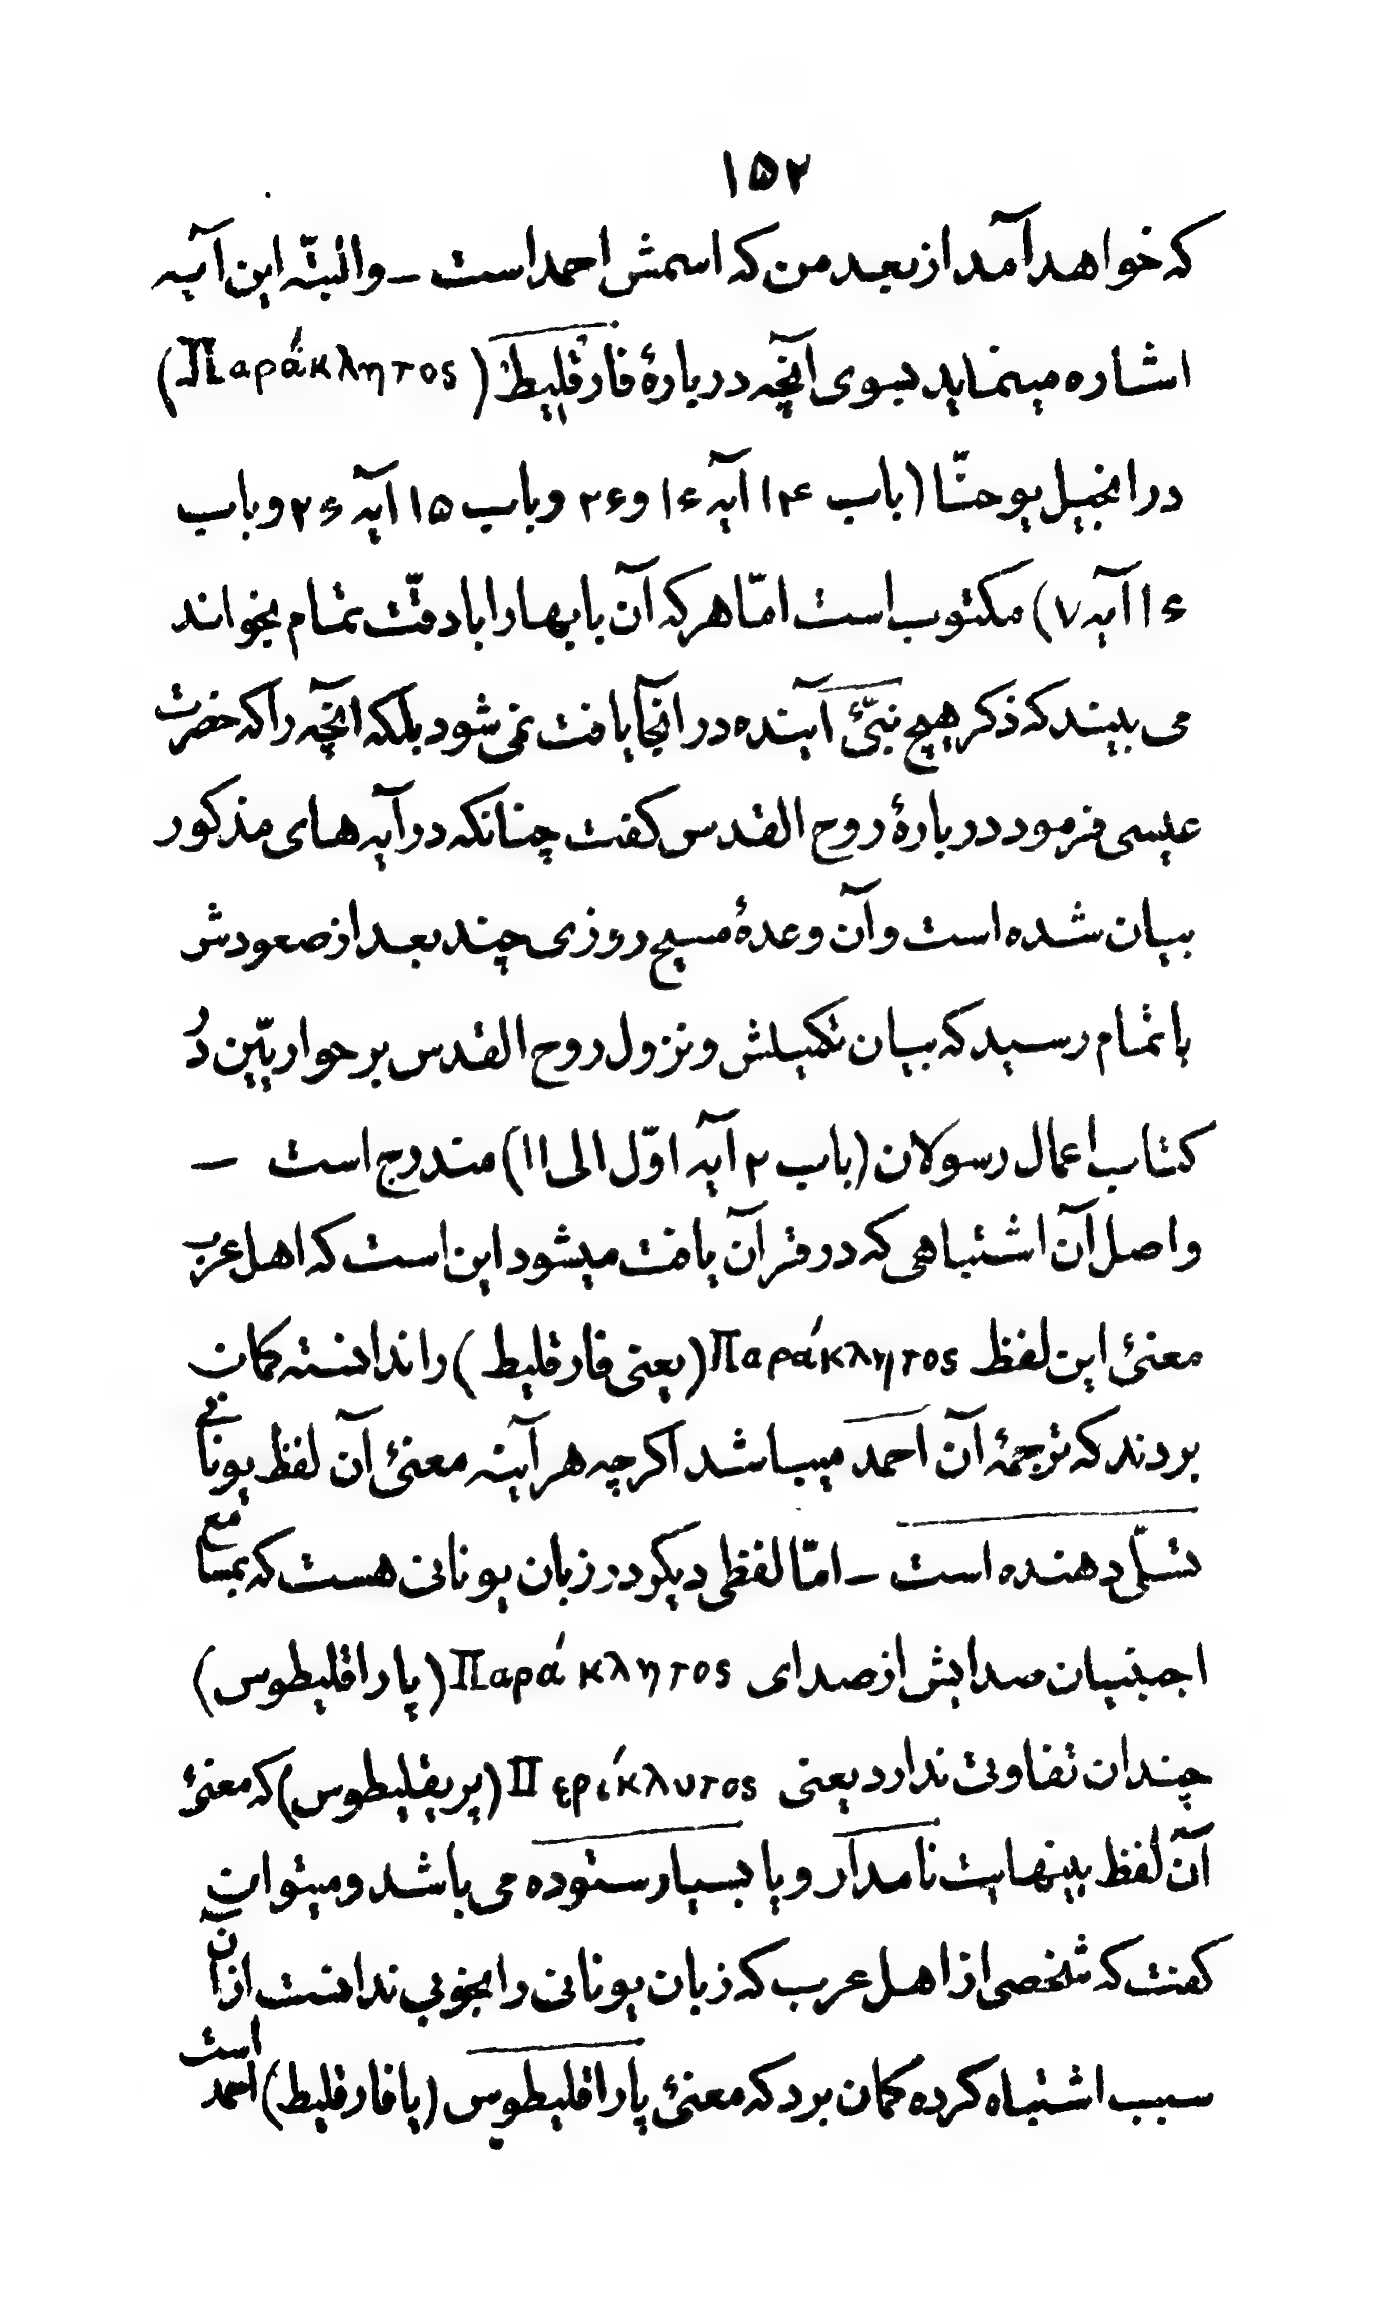 ۱۵۲
که خواهد آمد از بعد من که اسمش احمد است – والبتّه این آیه
اشاره مینماید بسوی آنچه دربارهٔ فارقلیط (Παράκλητος)
در انجیل یوحنّا (باب ۱۴ آیه ۱۶ و ۲۶ وباب ۱۵ آیه ۲۶ وباب
۱۶ آیه ۷) مکتوب است امّا هر که آن بابها را با دقّت تمام بخواند
می بیند که ذکر هیچ نبیّ آینده در انجا یافت نمی شود بلکه انچه را که حضرت
عیسی فرمود دربارهٔ روح القدس گفت چنانکه در آیه های مذکور
بیان شده است و آن وعدهٔ مسیح روزی چند بعد از صعودش
باتمام رسید که بیان تکمیلش و نزول روح القدس بر حواریّین دُر
کتاب اعمال رسولان (باب ۲ آیه اوّل الی ۱۱) مندرج است –
واصل آن اشتباهی که در قرآن یافت میشود این است که اهل عرب
معنیٔ این لفظ Παράκλητος (یعنی فارقلیط) را ندانسته گمان
بردند که ترجمهٔ آن احمد میباشد اگرچه هر آینه معنیٔ آن لفظ یونانی
تسلّی دهنده است – امّا لفظی دیگر در زبان یونانی هست که بمسامع
اجنبیان صدایش از صدای Παράκλητος (پاراقلیطوس)
چندان تفاوت ندارد یعنی Περίκλυτος (پریقلیطوس) که معنیٔ
آن لفظ بینهایت نامدار و یا بسیار ستوده می باشد و میتوان
گفت که شخصی از اهل عرب که زبان یونانی را بخوبی ندانست از آن
سبب اشتباه کرده گمان برد که معنیٔ پاراقلیطوس (یا فارقلیط) احمد است